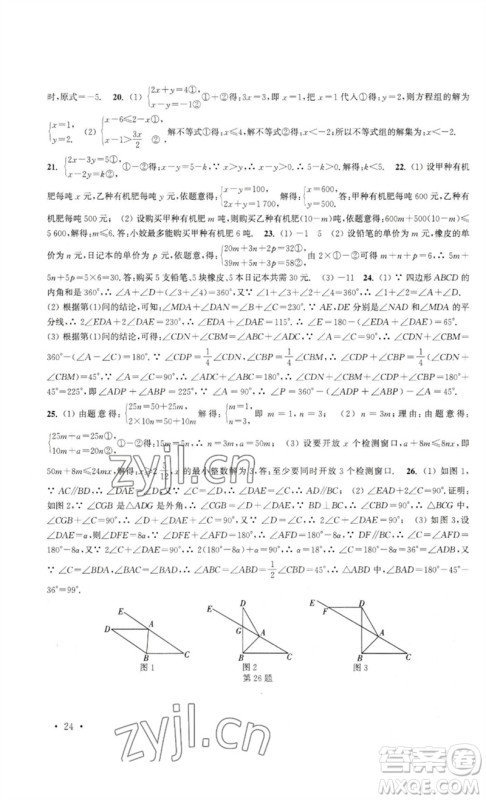 时,原式=-5. 20. (1) {2x+y=4①, x-y=-1②, ①+②得:3x=3,即 x=1,把 x=1 代入①得:y=2,则方程组的解为
{x=1, y=2. (2) {x-6≤2-x①, x-1>3x/2②, 解不等式①得:x≤4,解不等式②得:x<-2;所以不等式组的解集为x<-2.
21. {2x-3y=5①, x-2y=k②, ①-②得:x-y=5-k,∵x>y,∴x-y>0.∴5-k>0.解得:k<5. 22. (1) 设甲种有机
肥每吨 x 元,乙种有机肥每吨 y 元,依题意得:{x-y=100, 2x+y=1 700, 解得:{x=600, y=500. 答:甲种有机肥每吨 600 元,乙种有机
肥每吨 500 元; (2) 设购买甲种有机肥 m 吨,则购买乙种有机肥(10-m)吨,依题意得:600m+500(10-m)≤
5 600,解得:m≤6.答:小姣最多能购买甲种有机肥 6 吨. 23. (1) -1 5 (2) 设铅笔的单价为 m 元,橡皮的单
价为 n 元,日记本的单价为 p 元,依题意得:{20m+3n+2p=32①, 39m+5n+3p=58②, 由 2×①-②可得 m+n+p=6,∴5m+
5n+5p=5×6=30.答:购买 5 支铅笔、5 块橡皮、5 本日记本共需 30 元. (3) -11 24. (1) ∵四边形 ABCD 的
内角和是 360°,∴∠A+∠D+(∠3+∠4)=360°,∵∠1+∠3+∠2+∠4=360°,∴∠1+∠2=∠A+∠D.
(2) 根据第(1)问的结论,可知∠MDA+∠NAD=∠B+∠C=240°,∵AE、DE 分别是∠NAD 和∠MDA 的平
分线,∴2∠EDA+2∠DAE=240°,∴∠EDA+∠DAE=120°,∴∠E=180°-(∠EDA+∠DAE)=60°.
(3) ∵∠A=∠C=90°,∴∠A+∠C=180°,根据第(1)问的结论,∠CDN+∠CBM=180°,∴∠CDN+∠CBM=
360°-(∠A-∠C)=180°,∵∠CDP=1/4∠CDN,∠CBP=1/4∠CBM,∴∠CDP+∠CBP=1/4(∠CDN+
∠CBM)=45°,∵∠A=∠C=90°,∴∠ADP+∠ABP=360°-(∠CDN+∠CBM)+(∠CDP+∠CBP)=180°+
45°=225°,即∠ADP+∠ABP=225°,∵∠A=90°,∴∠P=360°-(∠ADP+∠ABP)-∠A=45°.
25. (1) 由题意得:{25n=50+m, 2×10n=50+10m, 解得:{n=3, m=1. (2) n=3m;理由:由题意得:
{25m+a=25n①, 10m+a=20n②, ①-②得:15m=5n,∴n=3m; (3) 设开放 x 个检测窗口,由题意得:50m+8m≤8nx,即
50m+8m≤24mx,解得:x≥2 5/12,x 的最小整数解为 3.答:至少需要开放 3 个检测窗口. 26. (1) 如图 1,
∵AC∥BD,∴∠DAE=∠D,∵∠C=∠D,∴∠DAE=∠C. (2) ∠DAE+2∠C=90°,证明:
如图 2,∵∠CGB 是△ADG 是外角,∴∠CGB=∠D+∠DAE,∵BD⊥BC,∴∠CBD=90°,∴△BCG 中,
∠CGB+∠C=90°,∴∠D+∠DAE+∠C=90°,∵∠D=∠C,∴2∠C+∠DAE=90°; (3) 如图 3,设
∠DAE=α,则∠DFE=8α,∵∠DFE+∠AFD=180°,∴∠AFD=180°-8α,∵DF∥BC,∴∠C=∠AFD=
180°-8α,∵2∠C+∠DAE=90°,∴2(180°-8α)+α=90°,∴α=18°,∴∠C=180°-8α=36°=∠ADB,
∵∠C=∠BDA,∠BAC=∠BAD,∴∠ABC=∠ABD=1/2∠CBD=45°,∴△ABD 中,∠BAD=180°-45°-
36°=99°.
图 1 图 2 图 3
第 26 题
• 24 •
zyjl.cn
zyjl.cn
答案圈
MXQE.COM